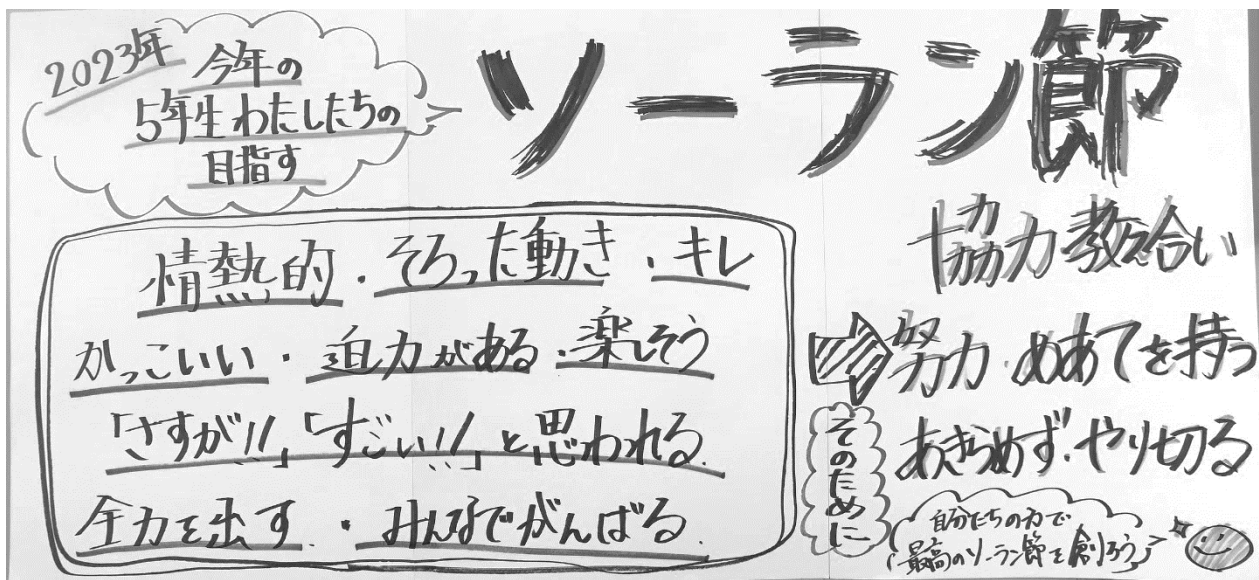 2023年
今年の
5年生わたしたちの
目指す
ソーラン節
情熱的・そろった動き・キレ
かっこいい・迫力がある・楽しそう
「さすが!!」「すごい!!」と思われる
全力を出す・みんなでがんばる
そのために
協力 教え合い
努力・めあてを持つ
あきらめず・やり切る
自分たちの力で
最高のソーラン節を創ろう